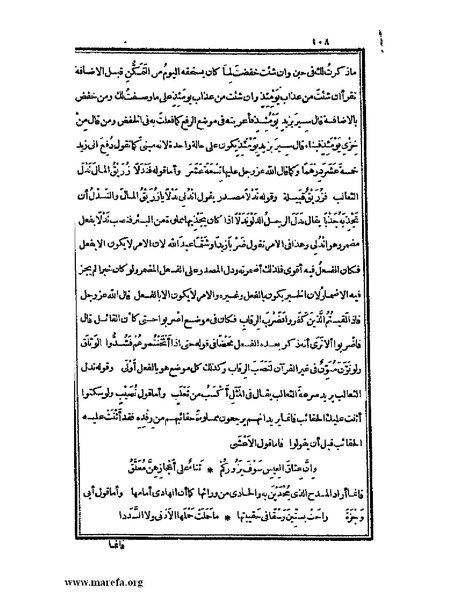 ١٠٨
ما ذكرتُ لك في حين وان شئت خفضت لما كان يستحقه اليوم من التمكّن قبل الاضافة
تقرأ ان شئت من عذاب يَوْمَئِذٍ وان شئت من عذاب يَوْمِئِذٍ على ما وصفت لك ومن خفض
بالاضافة قال سير بزيد يومئذ فأعربته في موضع الرفع كما فعلت به في الخفض ومن قال من
خزي يومئذ فبناه قال سير بزيد يومئذ يكون على حالة واحدة لانه مبنى كما تقول دُفع الى زيد
خمسة عشر درهما وكما قال الله عز وجل عليها تسعة عشر وأما قوله فندلًا زريق المال ندل
الثعالب فزريق قبيلة وقوله ندلًا مصدر يقول اندلى ندلًا يا زريق المال والندل أن
تجذبه جذبا يقال ندل الرجل الدلو ندلًا اذا كان يجذبها مملوءة من البئر فنصب ندلًا بفعل
مضمر وهو اندلى وهذا في الامر تقول ضربًا زيدا وشتمًا عبد الله لان الامر لا يكون الا بفعل
فكان الفعل فيه أقوى فلذلك أضمرته ودل المصدر على الفعل المضمر ولو كان خبرا لم يجز
فيه الاضمار لان الخبر يكون بالفعل وغيره والامر لا يكون الا بالفعل قال الله عز وجل
فاذا لقيتم الذين كفروا فضرب الرقاب فكان في موضع اضربوا حتى كأن القائل قال
فاضربوا ألا ترى أنه ذكر بعده الفعل محضا في قوله حتى اذا أثخنتموهم فشدوا الوثاق
ولو نوّن منوّن في غير القرآن لنصب الرقاب وكذلك كل موضع هو بالفعل أولى وقوله ندل
الثعالب يريد سرعة الثعالب يقال في المثل أكسب من ثعلب وأما قول نصيب ولو سكتوا
أثنت عليك الحقائب فانما يريد انهم يرجعون مملوءة حقائبهم من رفده فقد أثنت عليه
الحقائب قبل أن يقولوا فاما قول الأعشى
وانّ عتاق العيس سوف يزوركم * ثناء على أعجازهن معلق
فانما أراد المدح الذي يحدين به والحادى من ورائها كما أن الهادى أمامها وأما قول أبى
وجزة راحت بستين وسقا في حقيبتها * ما حملت حملها الأدنى ولا السددا
فانما
www.marefa.org